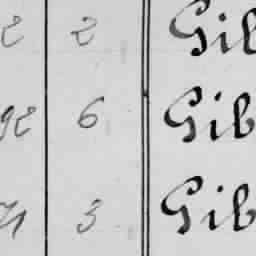 2 2 Gib
92 6 Gib
71 3 Gib